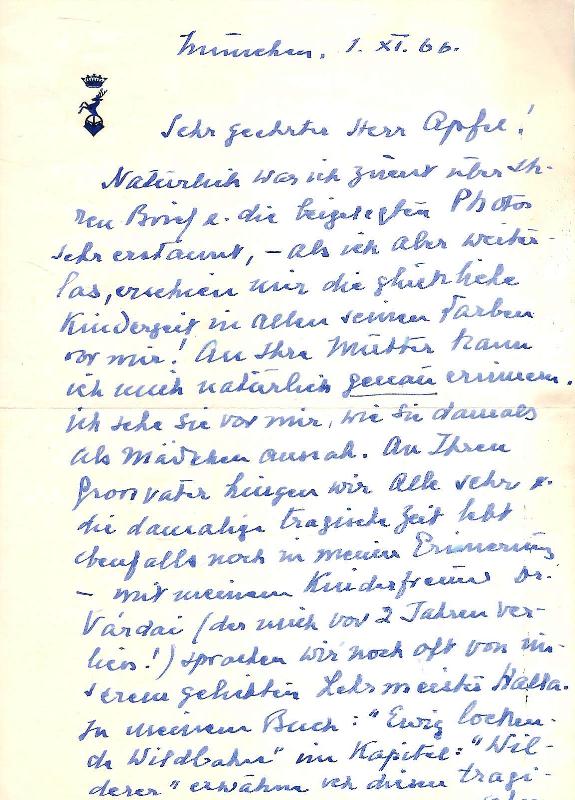 München, 1. XI. 66.
Sehr geehrter Herr Apfel!
Natürlich war ich zuerst über Ih-
ren Brief u. die beigelegten Photos
sehr erstaunt, – als ich aber weiter-
las, erschien mir die glückliche
Kinderzeit in allen seinen Farben
vor mir! An Ihre Mutter kann
ich mich natürlich genau erinnern.
Ich sehe Sie vor mir, wie Sie damals
als Mädchen aussah. An Ihren
Grossvater hingen wir Alle sehr u.
die damalige tragische Zeit lebt
ebenfalls noch in meine Erinnerung
– mit meinem Kinderfreund Dr.
Várdai (der mich vor 2 Jahren ver-
liess!) sprachen wir noch oft von un-
serem geliebten Lehrmeister
In meinem Buch: "Ewig locken-
de Wildbahn" im Kapitel: "Wil-
derer" erwähne ich diesen tragi-